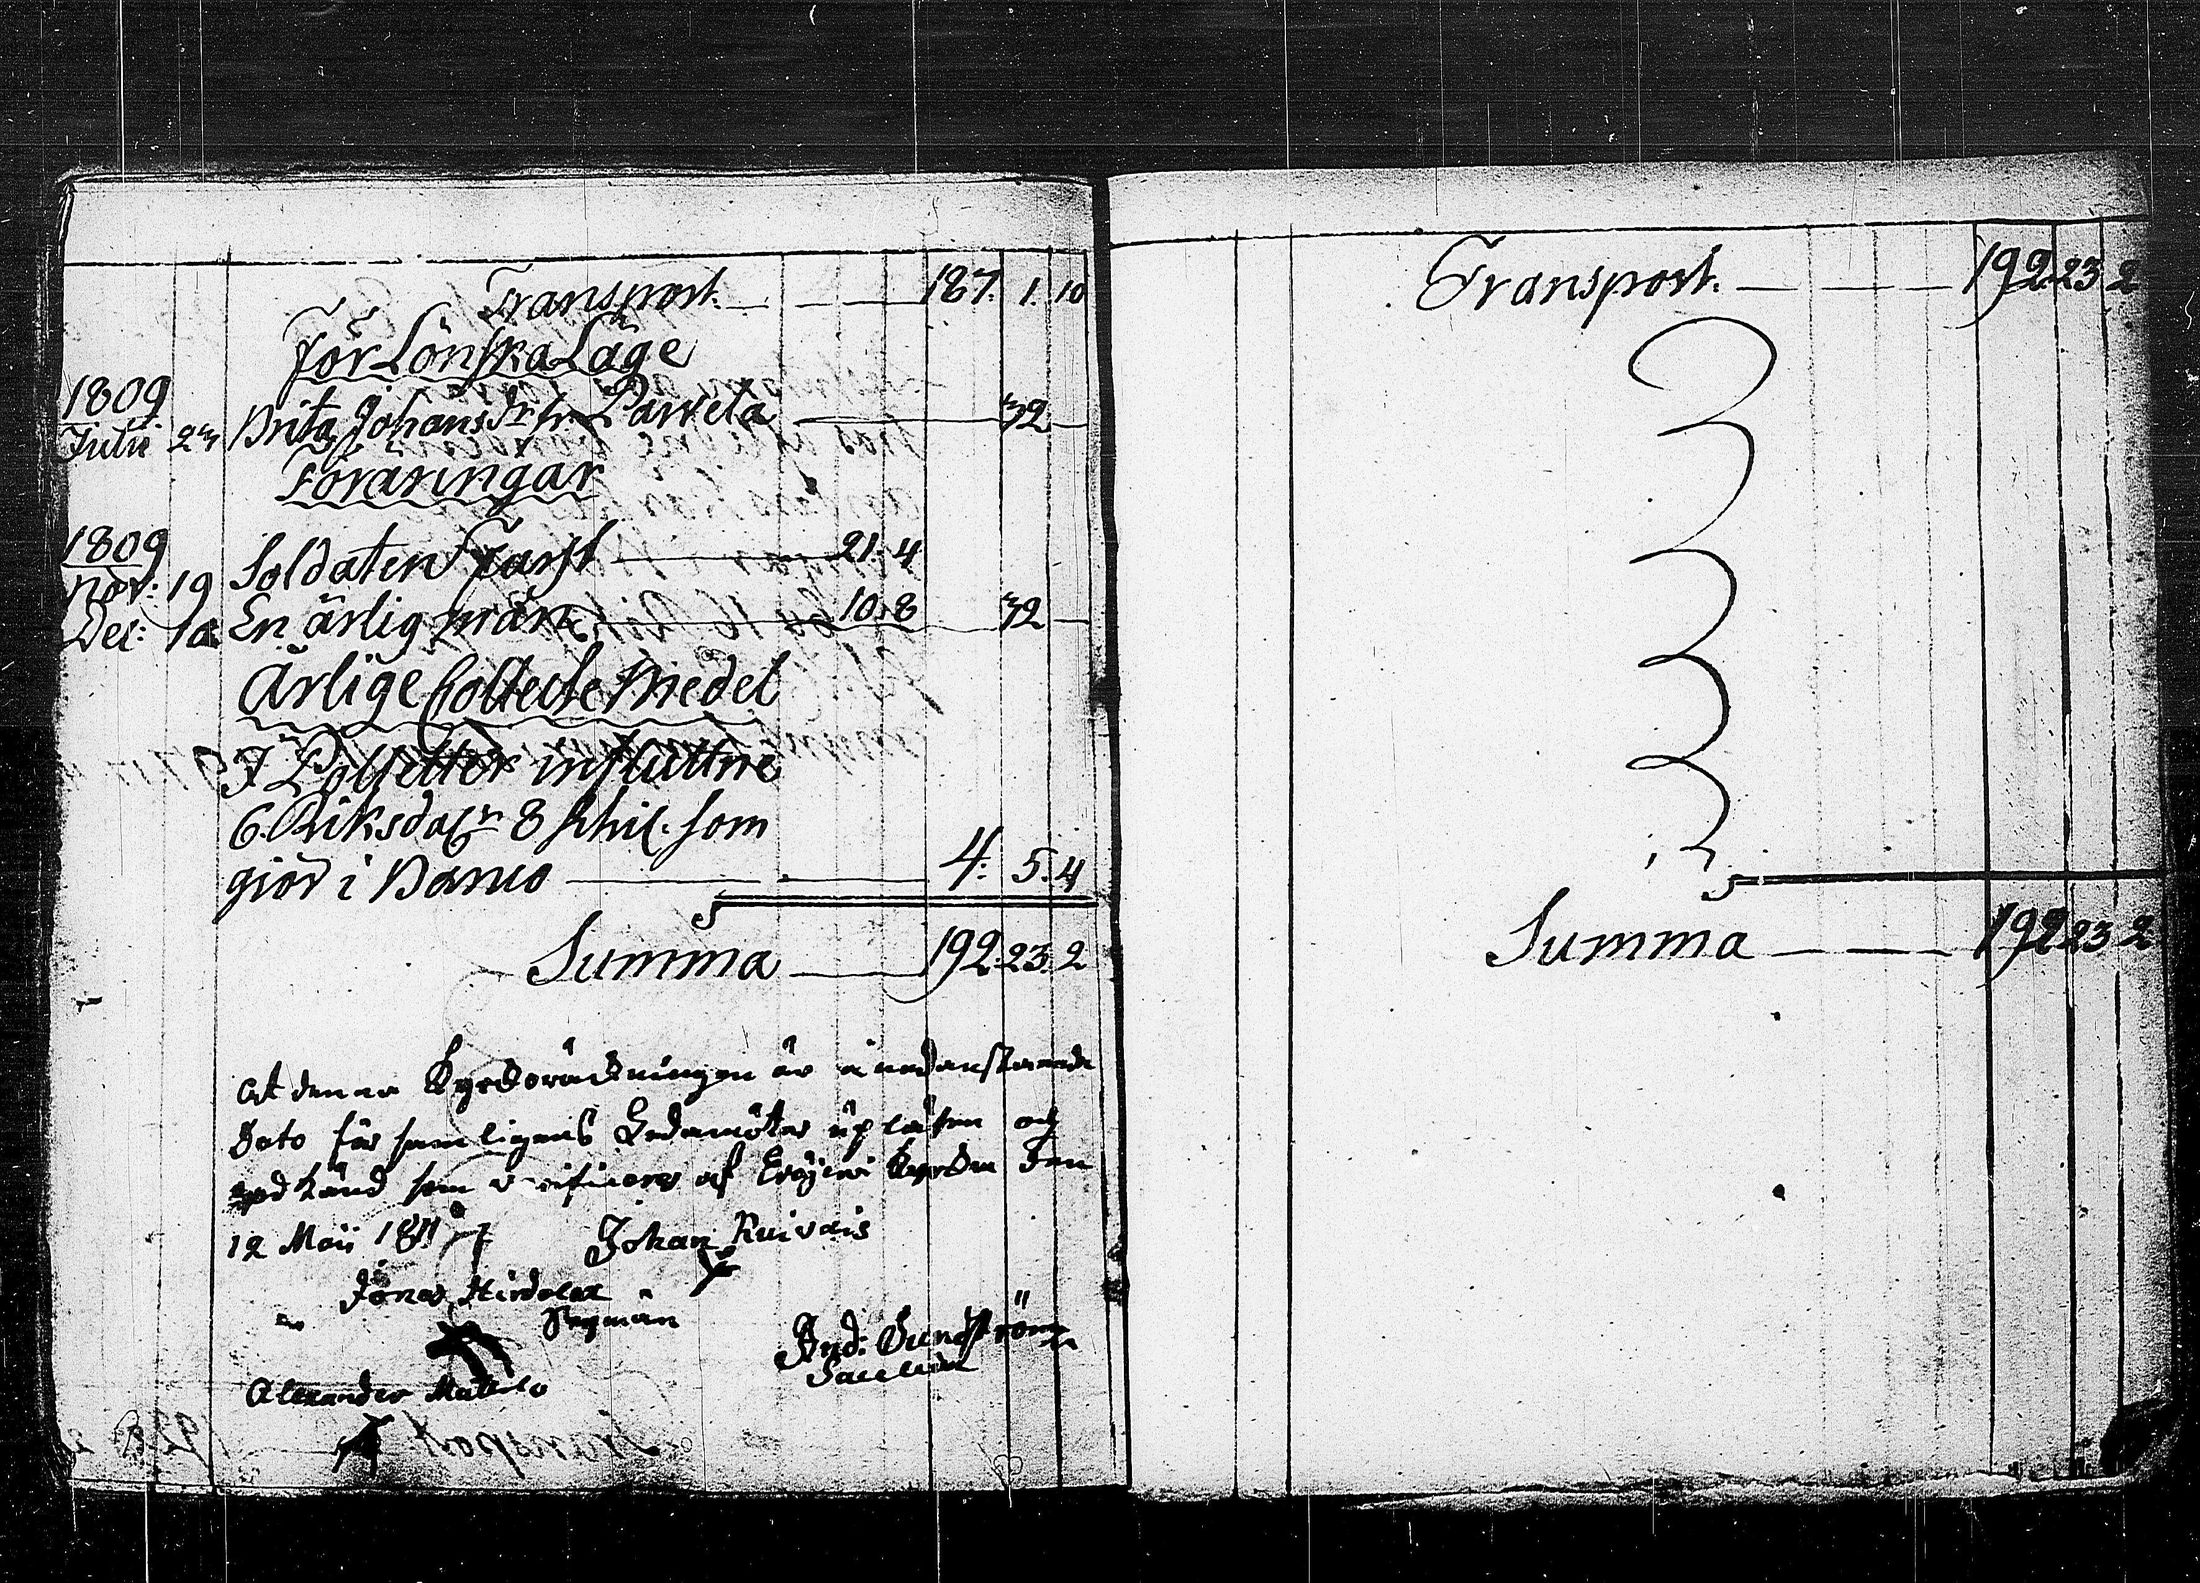 Transport. 187. 1. 10
För Lönska Läge
1809
Julii 23 Brita Johansdr fr Parvela 32
Föräringar
1809
Nov: 19 Soldaten Frant 21. 4
Dec: En ärlig man 10. 8 32
Ärlige Collecte Medel
I Polletter influttne
6. Riksdalr 8 skil. som
giör i Banco 4. 5. 4
Summa 192. 23. 2
At denna Kyrkoräkningen är å nedanstående
Dato för samligens Ledamöter upläsen och
godkänd som verificeras af Kyrkan den
12 Maii 1811 Johan Ruivais
Jonas
Alexander Mattila
And: Sundström
Sacellan
Transport. 192 23 2
Summa 192 23 2